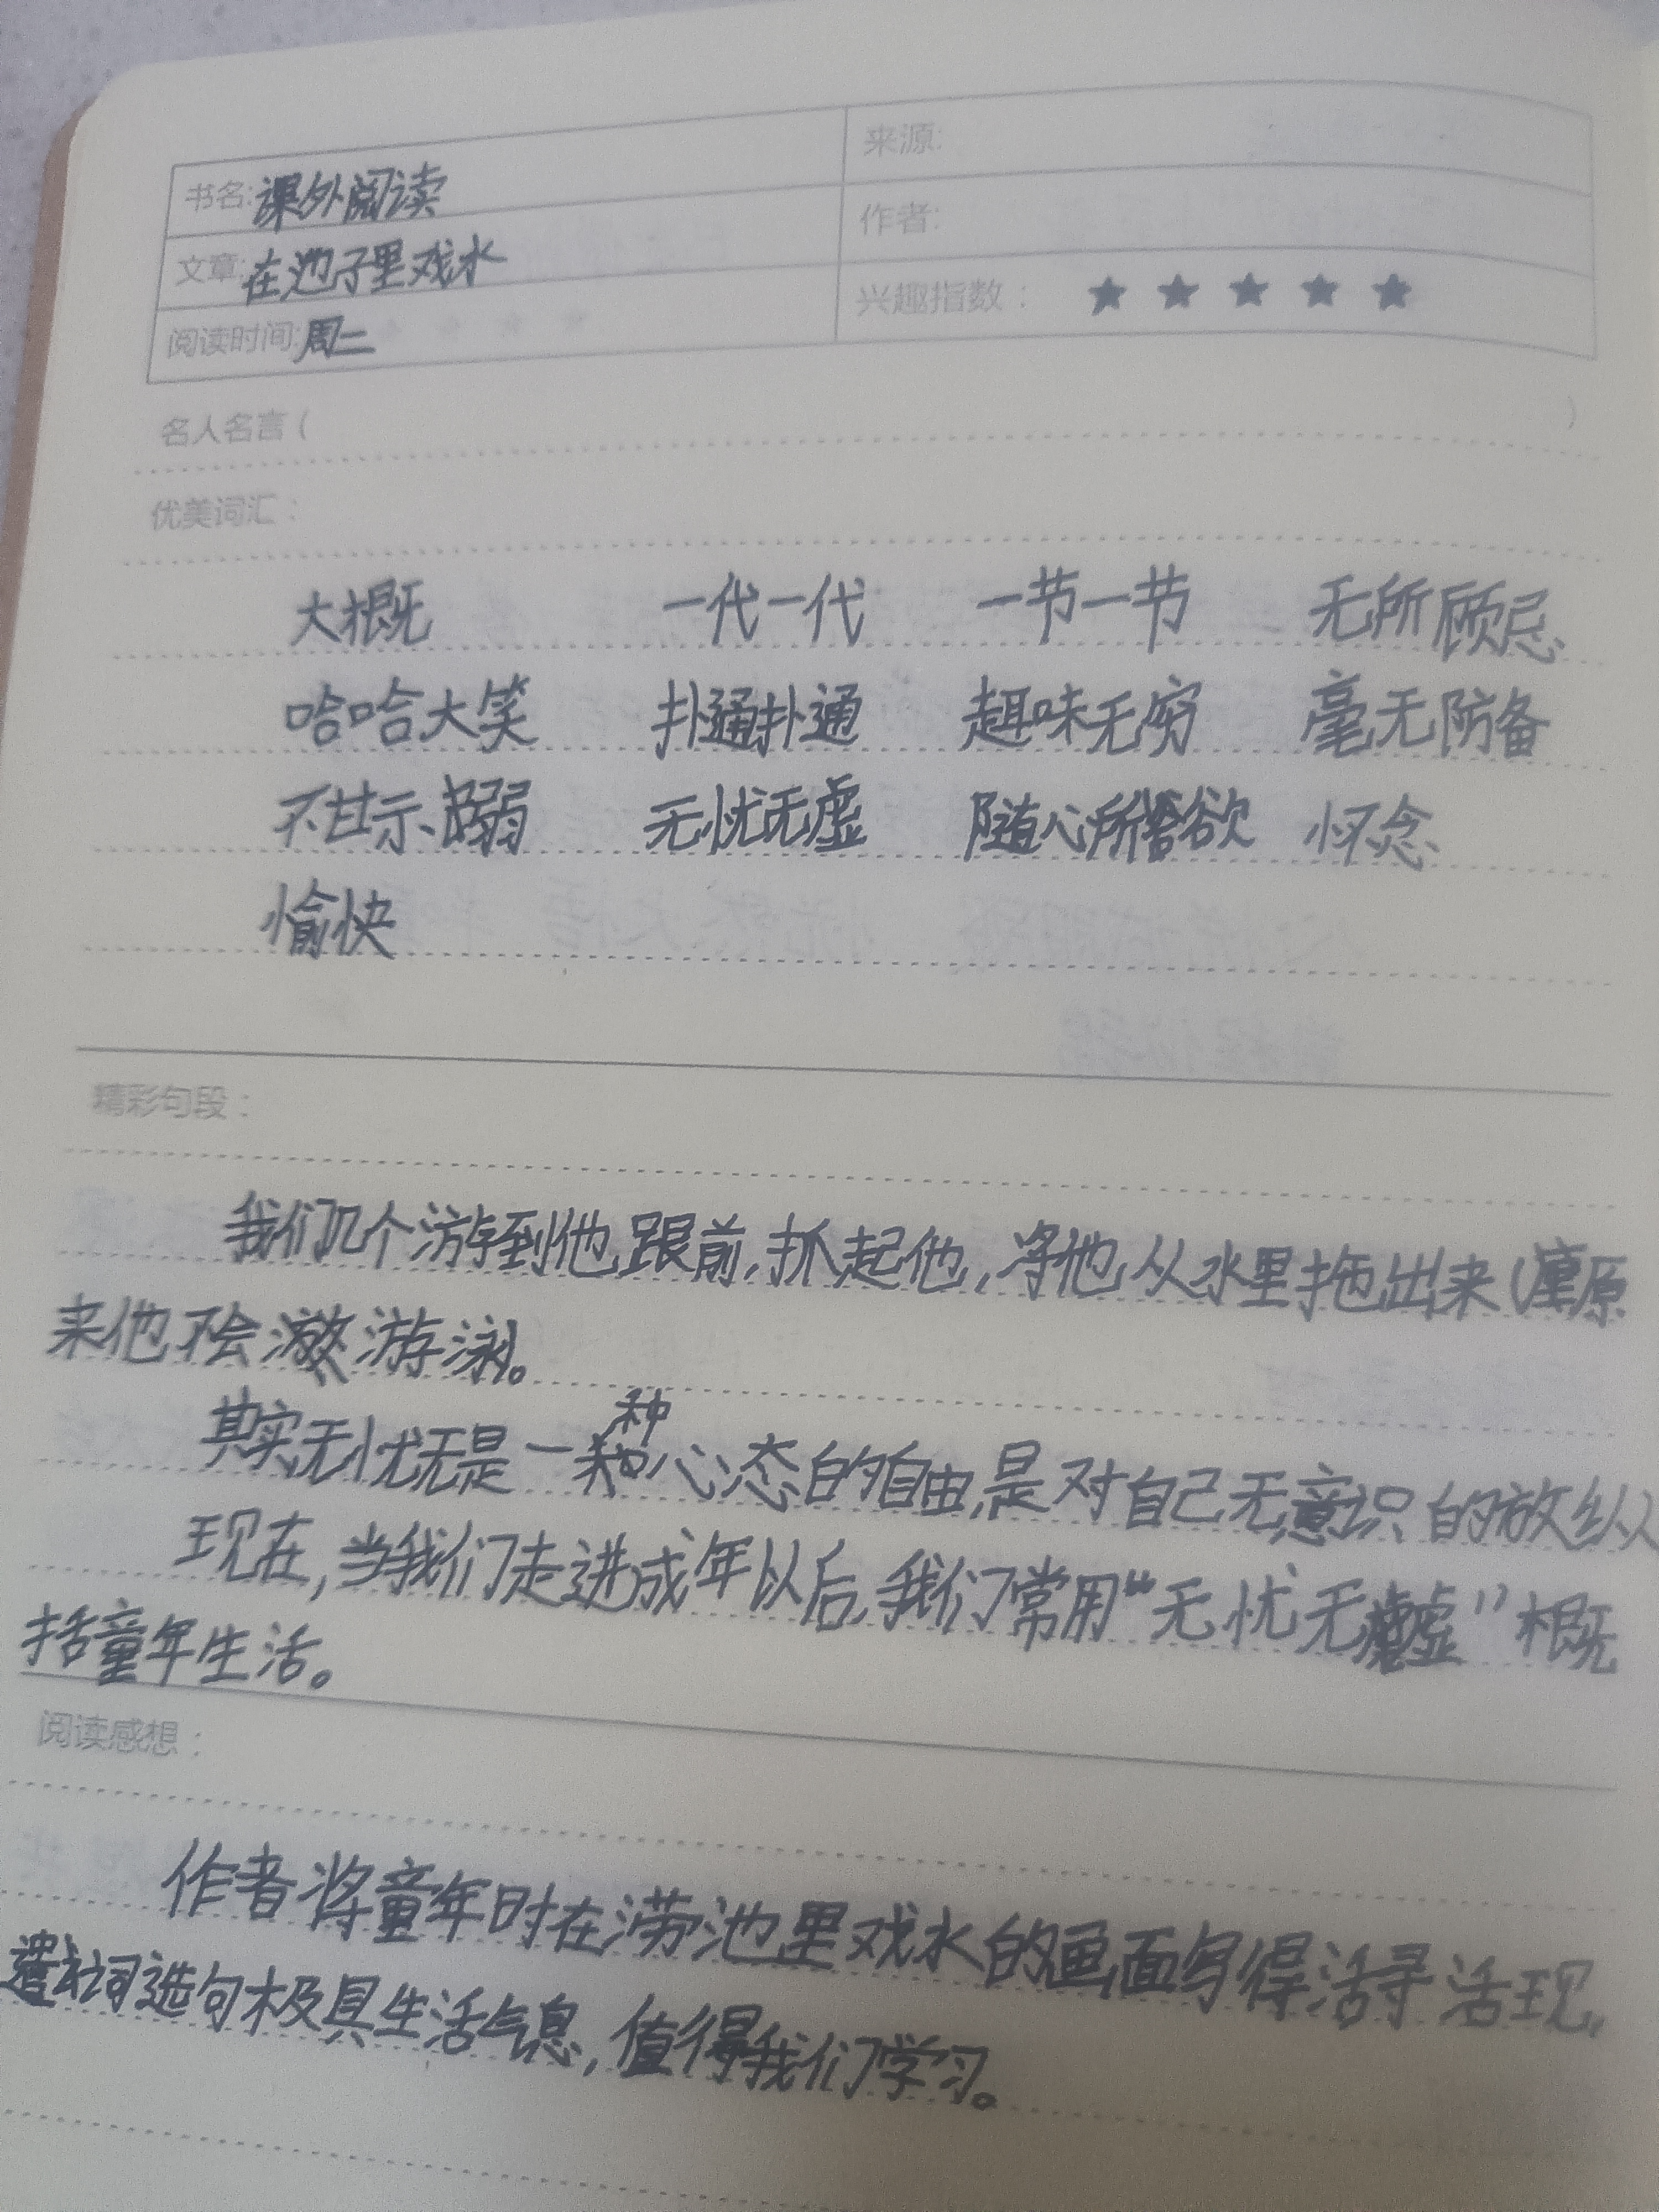 书名:课外阅读 来源:
文章:在池子里戏水 作者:
阅读时间:周二 兴趣指数: ★ ★ ★ ★ ★
名人名言( )
优美词汇:
大概 一代一代 一节一节 无所顾忌
哈哈大笑 扑通扑通 趣味无穷 毫无防备
不甘示弱 无忧无虚 随心所欲 怀念
愉快
精彩句段:
我们几个游到他跟前,抓起他,将他从水里拖出来,原
来他不会游泳。
其实无忧无是一种心态的自由,是对自己无意识的放纵
现在,当我们走进成年以后,我们常用“无忧无虚”概
括童年生活。
阅读感想:
作者将童年时在涝池里戏水的画面写得活寻活现,
遣词造句极具生活气息,值得我们学习。